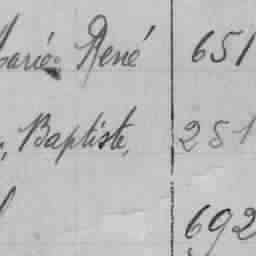 Marie René 651
, Baptiste, 251
692